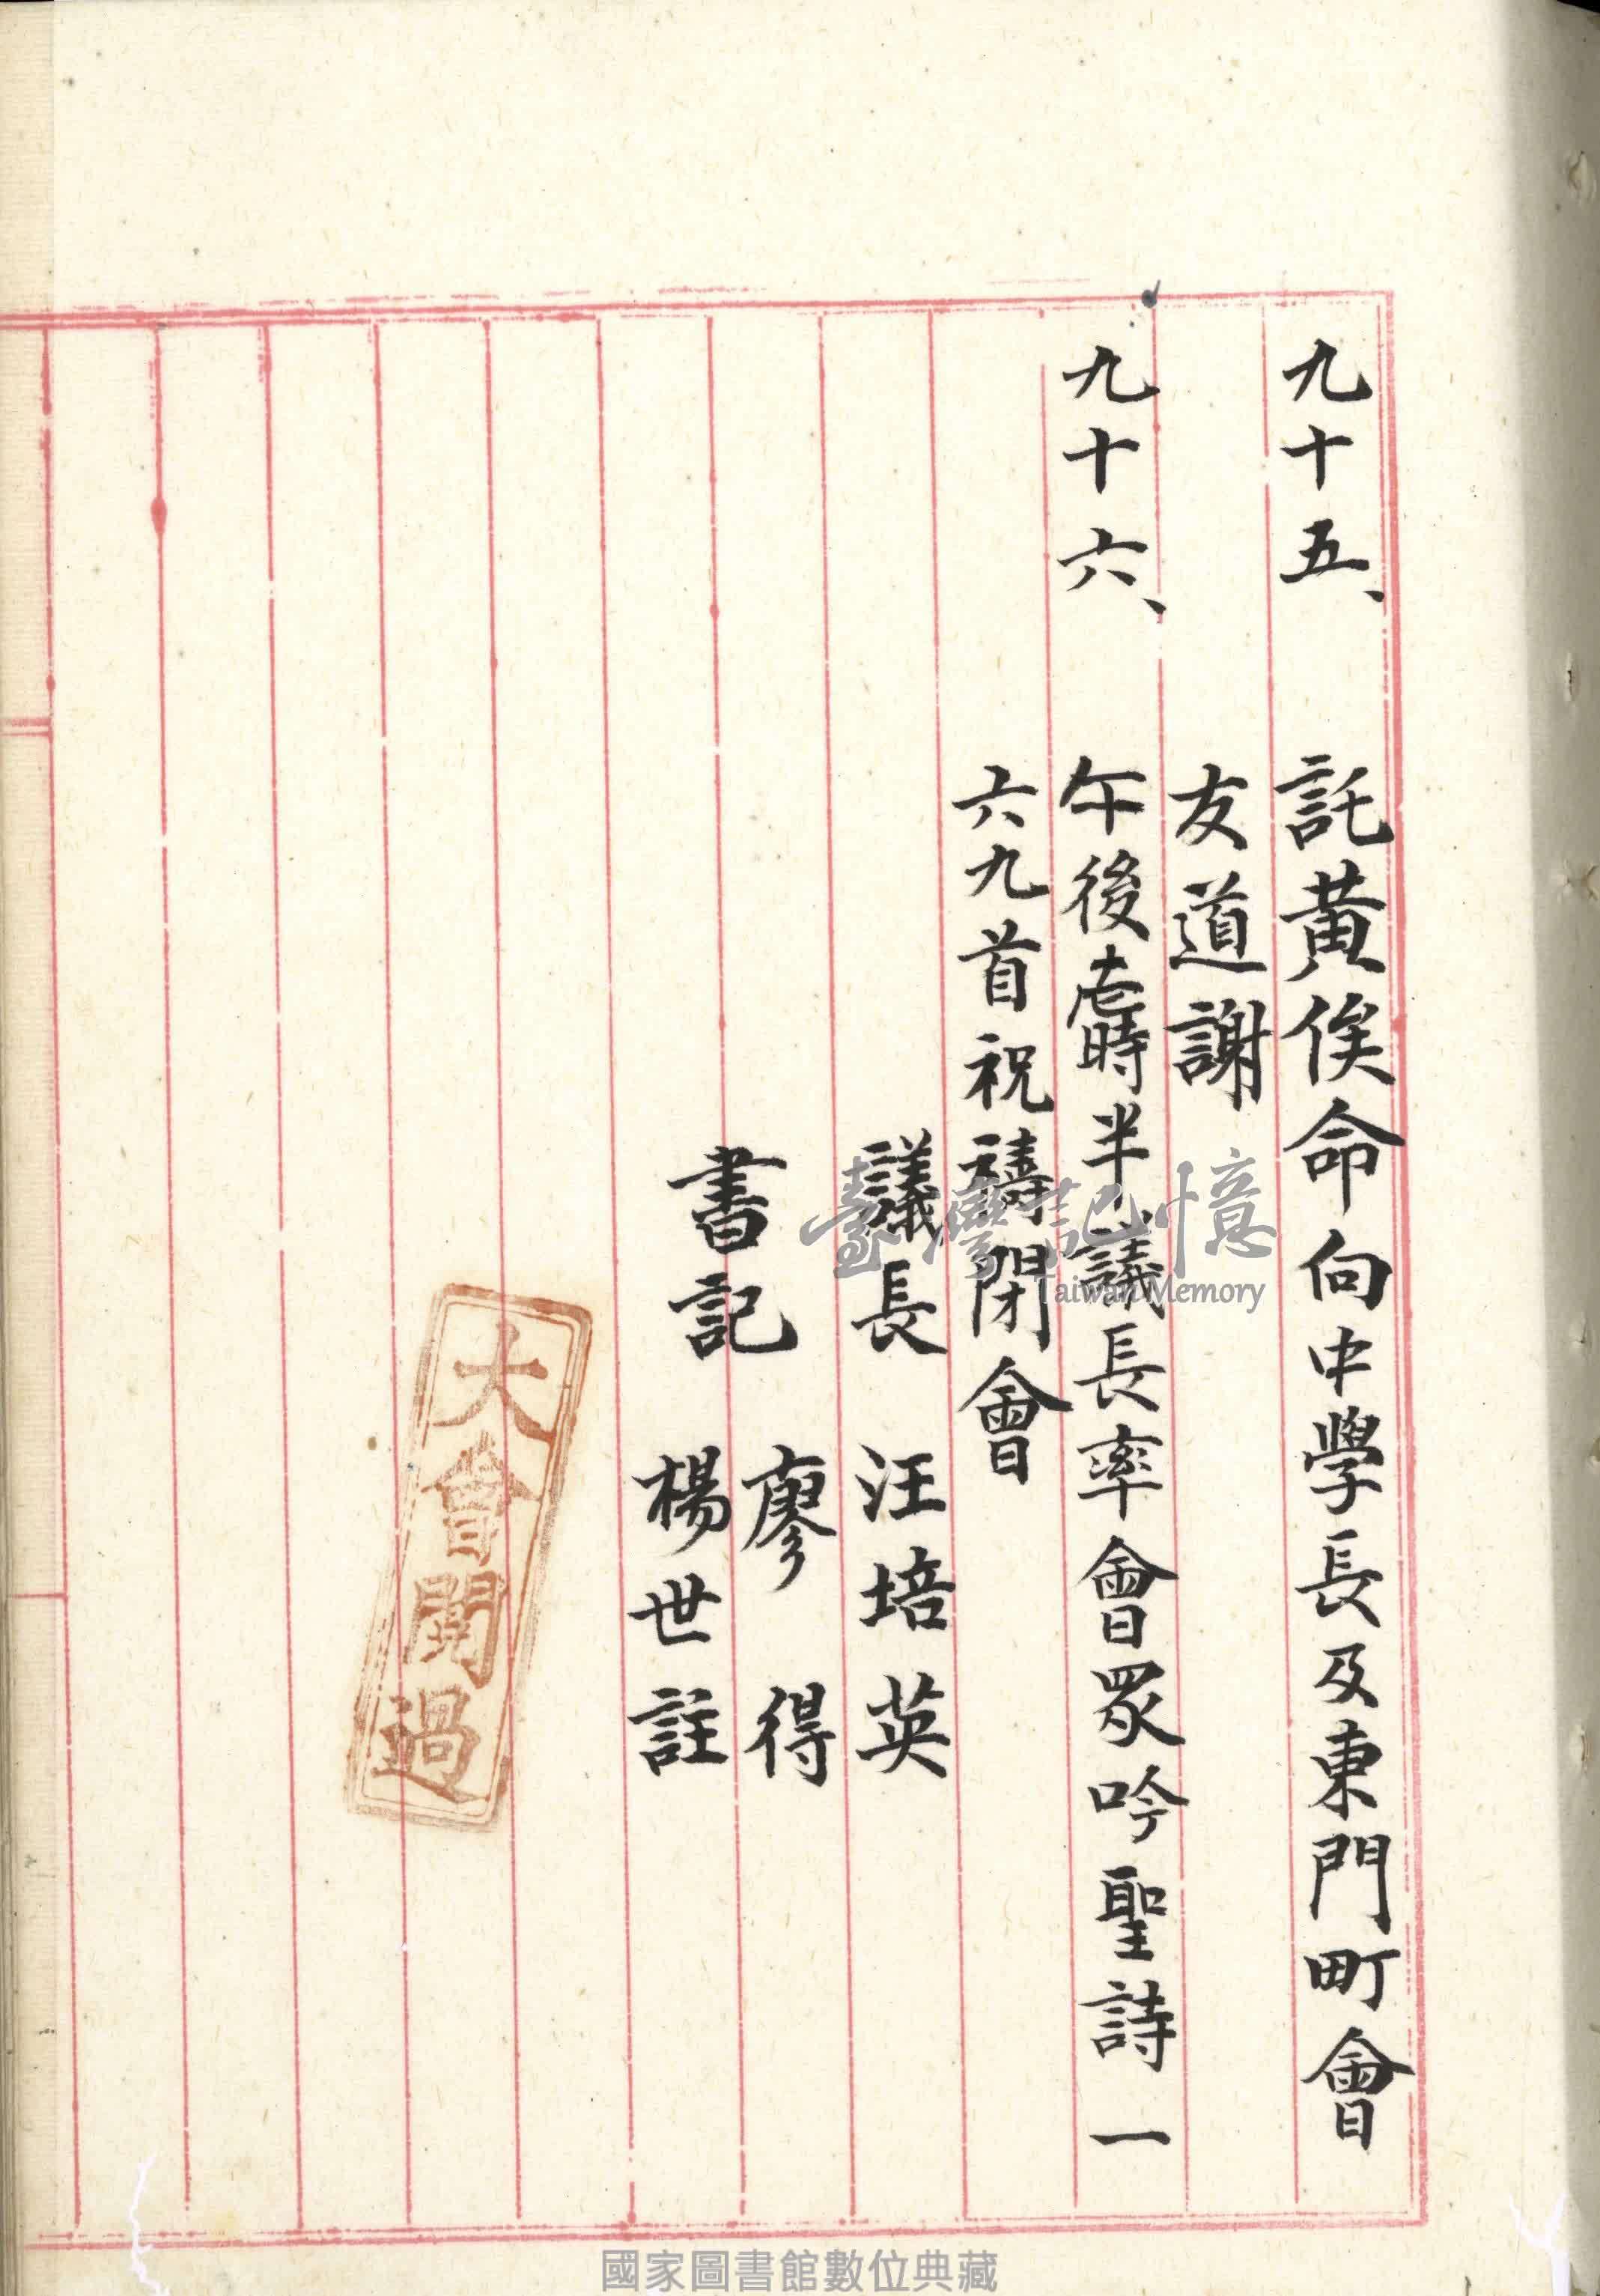 九十五、 託黃俟命向中學長及東門町會
友道謝
九十六、 午後壱時半議長率會眾吟聖詩一
六九首祝禱閉會
議長 汪培英
書記 廖得
楊世註
大會閱過
臺灣記憶
Taiwan Memory
國家圖書館數位典藏